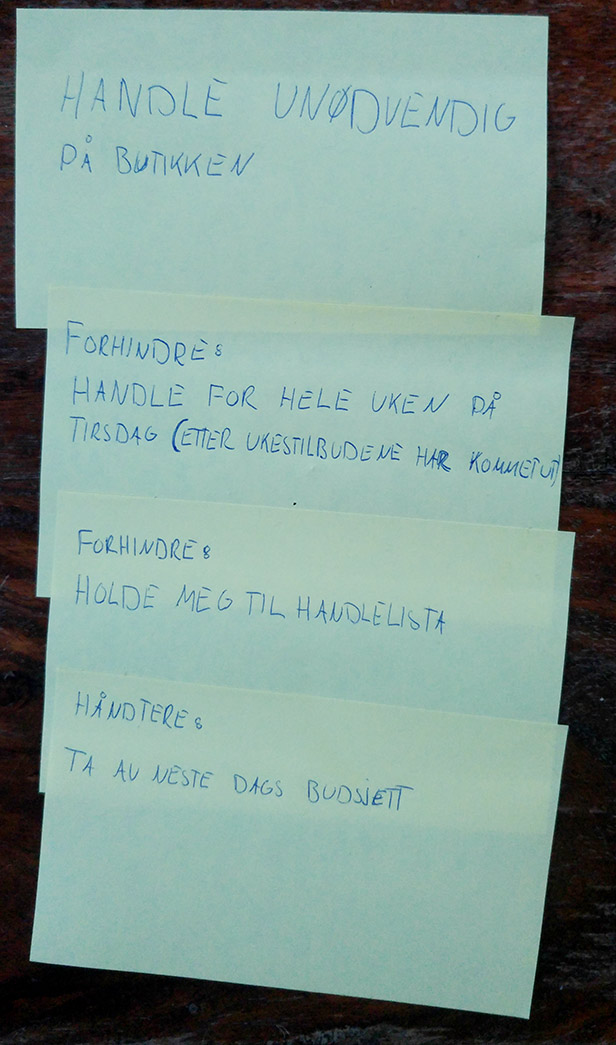 HANDLE UNØDVENDIG
PÅ BUTIKKEN
FORHINDRE:
HANDLE FOR HELE UKEN PÅ
TIRSDAG (ETTER UKESTILBUDENE HAR KOMMET UT)
FORHINDRE:
HOLDE MEG TIL HANDLELISTA
HÅNDTERE:
TA AV NESTE DAGS BUDSJETT